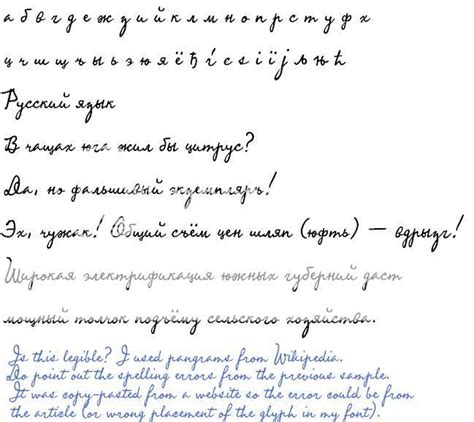 а б в г д е ж д и й к л м н о п р с т у ф х
ц ч ш щ ъ ы ь э ю я ё ђ ѓ є ѕ і ї ј љ њ ћ
Русский язык
В чащах юга жил бы цитрус?
Да, но фальшивый экземпляръ!
Эх, чужак! Общий съём цен шляп (юфть) — вдрызг!
Широкая электрификация южных губерний даст
мощный толчок подъёму сельского хозяйства.
Is this legible? I used pangrams from Wikipedia.
Do point out the spelling errors from the previous sample.
It was copy-pasted from a website so the error could be from
the article (or wrong placement of the glyph in my font).